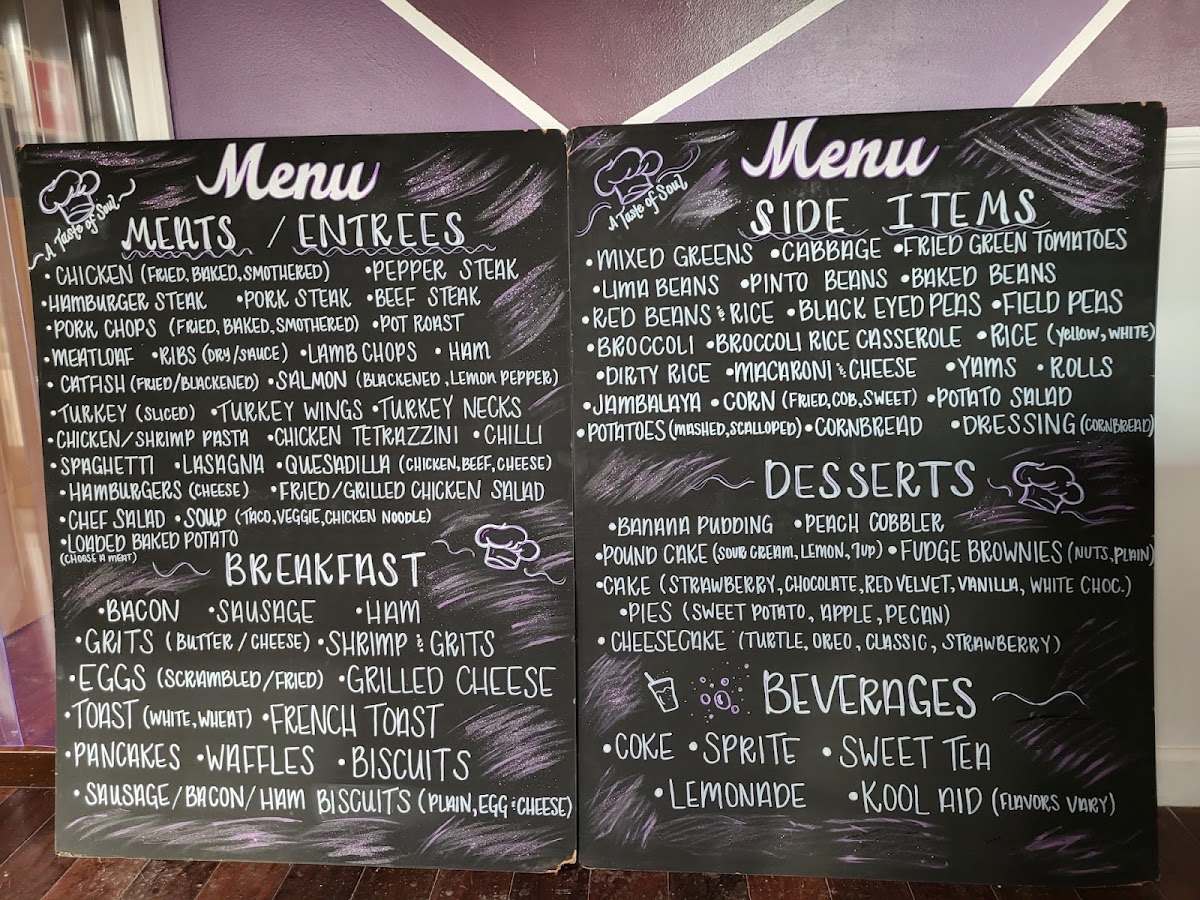 Menu
A Taste of Soul
MEATS / ENTREES
• CHICKEN (FRIED, BAKED, SMOTHERED) • PEPPER STEAK
• HAMBURGER STEAK • PORK STEAK • BEEF STEAK
• PORK CHOPS (FRIED, BAKED, SMOTHERED) • POT ROAST
• MEATLOAF • RIBS (DRY/SAUCE) • LAMB CHOPS • HAM
• CATFISH (FRIED/BLACKENED) • SALMON (BLACKENED, LEMON PEPPER)
• TURKEY (SLICED) • TURKEY WINGS • TURKEY NECKS
• CHICKEN/SHRIMP PASTA • CHICKEN TETRAZZINI • CHILLI
• SPAGHETTI • LASAGNA • QUESADILLA (CHICKEN, BEEF, CHEESE)
• HAMBURGERS (CHEESE) • FRIED/GRILLED CHICKEN SALAD
• CHEF SALAD • SOUP (TACO, VEGGIE, CHICKEN NOODLE)
• LOADED BAKED POTATO
(CHOOSE A MEAT)
BREAKFAST
• BACON • SAUSAGE • HAM
• GRITS (BUTTER / CHEESE) • SHRIMP & GRITS
• EGGS (SCRAMBLED/FRIED) • GRILLED CHEESE
• TOAST (WHITE, WHEAT) • FRENCH TOAST
• PANCAKES • WAFFLES • BISCUITS
• SAUSAGE/BACON/HAM BISCUITS (PLAIN, EGG & CHEESE)
Menu
A Taste of Soul
SIDE ITEMS
• MIXED GREENS • CABBAGE • FRIED GREEN TOMATOES
• LIMA BEANS • PINTO BEANS • BAKED BEANS
• RED BEANS & RICE • BLACK EYED PEAS • FIELD PEAS
• BROCCOLI • BROCCOLI RICE CASSEROLE • RICE (YELLOW, WHITE)
• DIRTY RICE • MACARONI & CHEESE • YAMS • ROLLS
• JAMBALAYA • CORN (FRIED, COB, SWEET) • POTATO SALAD
• POTATOES (MASHED, SCALLOPED) • CORNBREAD • DRESSING (CORNBREAD)
DESSERTS
• BANANA PUDDING • PEACH COBBLER
• POUND CAKE (SOUR CREAM, LEMON, 7UP) • FUDGE BROWNIES (NUTS, PLAIN)
• CAKE (STRAWBERRY, CHOCOLATE, RED VELVET, VANILLA, WHITE CHOC.)
• PIES (SWEET POTATO, APPLE, PECAN)
• CHEESECAKE (TURTLE, OREO, CLASSIC, STRAWBERRY)
BEVERAGES
• COKE • SPRITE • SWEET TEA
• LEMONADE • KOOL AID (FLAVORS VARY)